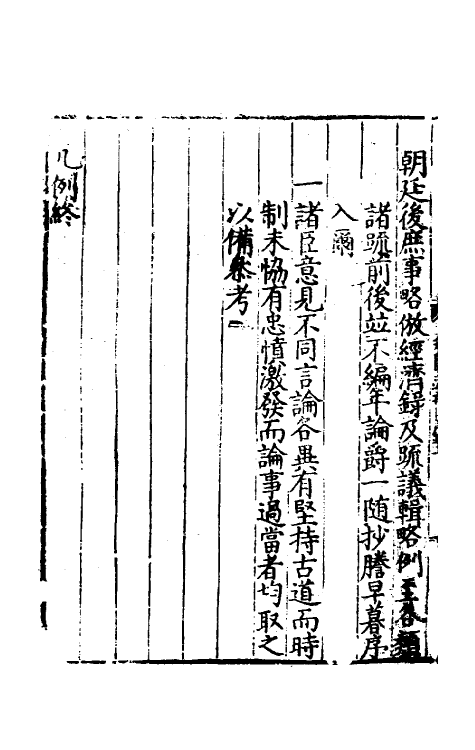 朝廷後庶事略倣經濟錄及䟽議輯略例至各類
諸䟽前後竝不編年論爵一隨抄謄早暮序
入爾
一諸臣意見不同言論各異有堅持古道而時
制未恊有忠憤激發而論事過當者均取之
以備叅考
凡例終